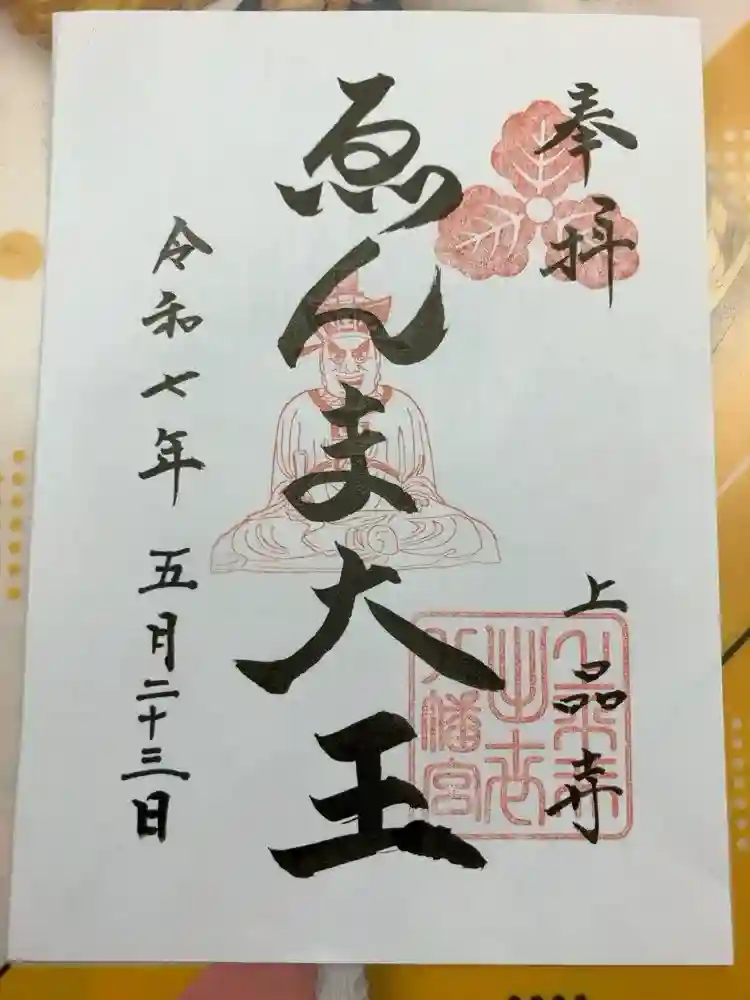 奉拝
上品寺
ゑんま大王
令和七年 五月二十三日